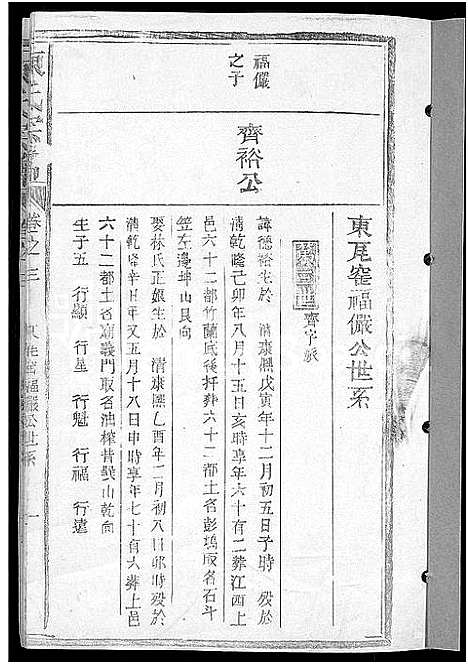 東瓦窰福儼公世系
齊字派
福儼
之子
齊裕公
諱德裕生於 清康熙戊寅年十二月初五日子時 殁於
清乾隆己卯年八月十五日亥時享年六十有二葬江西上
邑六十二都竹蘭底後扦葬六十二都土名彭塢取名石斗
笠左邊坤山艮向
娶林氏正娘生於 清康熙乙酉年二月初八日卯時殁於
清乾隆辛丑年又五月十八日申時享年七十有六葬上邑
六十二都土名義門取名油榨背巽山乾向
生子五 行顯 行星 行魁 行福 行遠
卷之三
福儼公世系
一